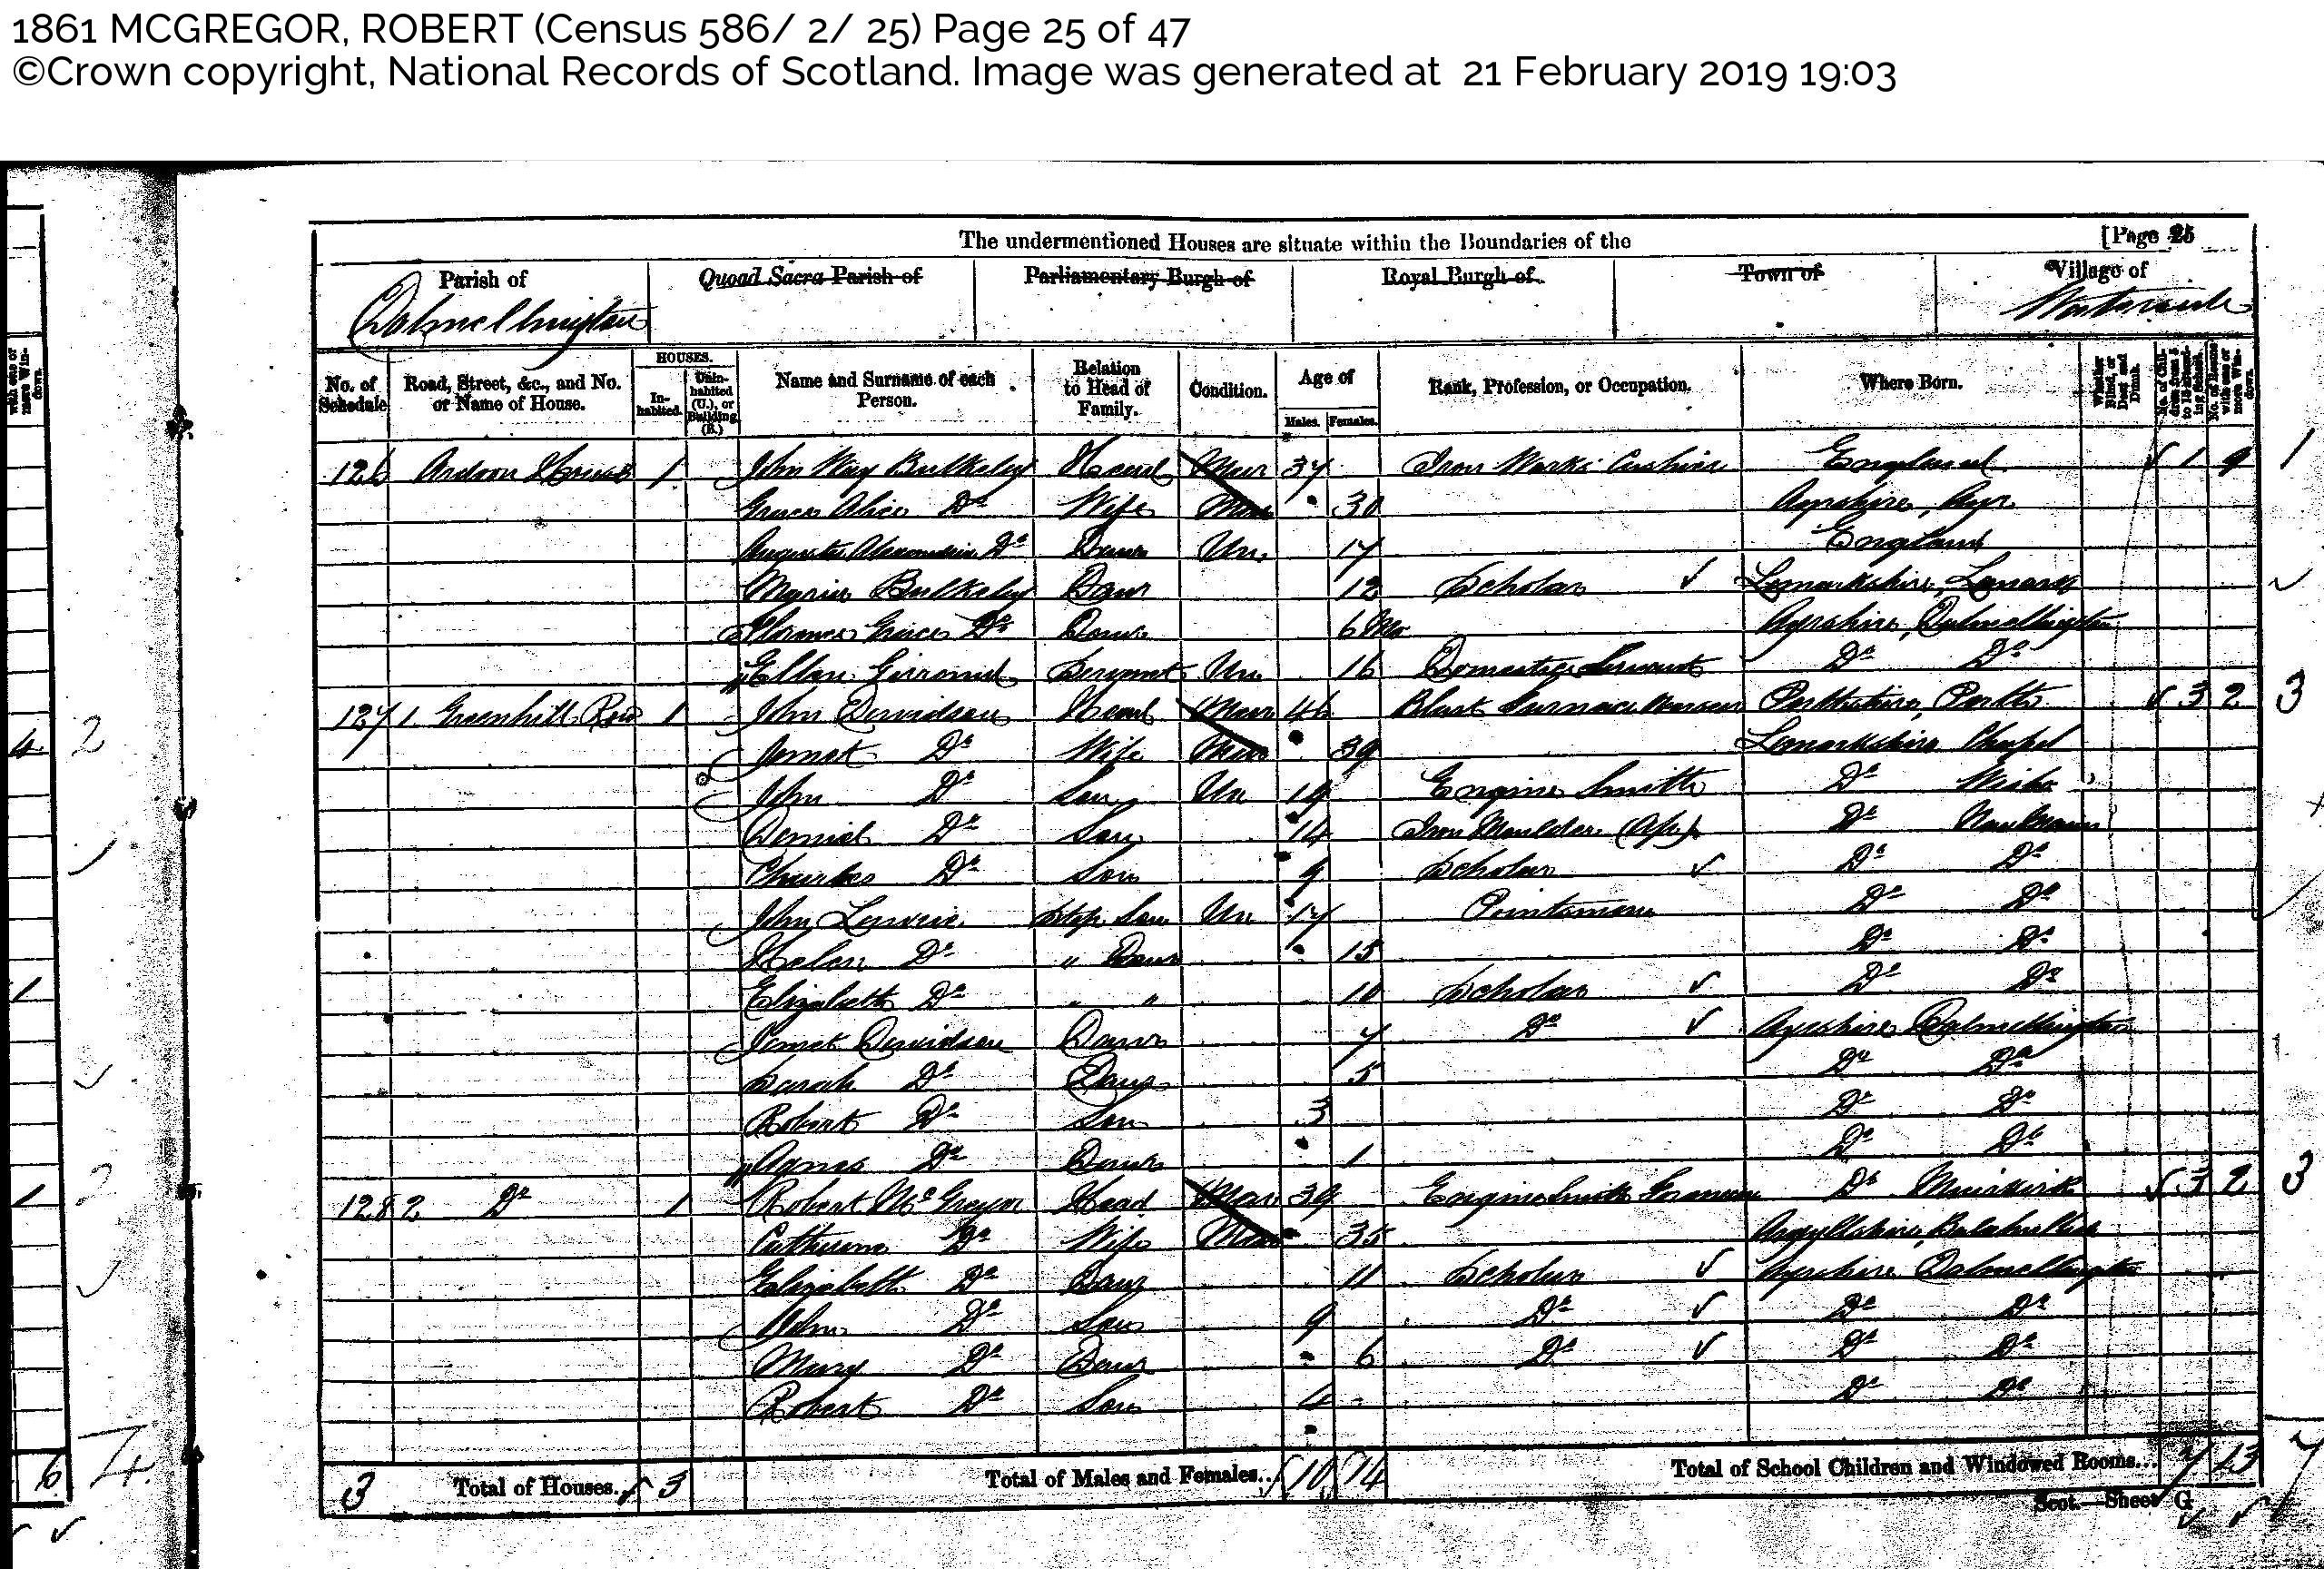 1861 MCGREGOR, ROBERT (Census 586/ 2/ 25) Page 25 of 47
©Crown copyright, National Records of Scotland. Image was generated at 21 February 2019 19:03
The undermentioned Houses are situate within the Boundaries of the [Page 25
Parish of Quoad Sacra Parish of Parliamentary Burgh of Royal Burgh of Town of Village of
Dalmellington Waterside
No. of Schedule Road, Street, &c., and No. or Name of House. HOUSES. Inhabited. Uninhabited (U.), or Building (B.) Name and Surname of each Person. Relation to Head of Family. Condition. Age of Males. Females. Rank, Profession, or Occupation. Where Born. Whether Blind, or Deaf and Dumb. No. of Children from 5 to 15 attending School. No. of Rooms with one or more Windows.
126 Ardoon House 1 John Bulkeley Head Mar 37 Iron Works Cashier England 1 9
Grace Alice Do Wife Mar 30 Ayrshire, Ayr
Augusta Do Daur Un. 17 England
Maria Bulkeley Daur 12 Scholar Lanarkshire, Lanark
Florence Grace Do Daur 6 Mo Ayrshire, Dalmellington
Ellen Servant Un. 16 Domestic Servant Do Do
127 1 Greenhill Row 1 John Davidson Head Mar 46 Blast Furnace Perthshire, Perth 3 2 3
Janet Do Wife Mar 39 Lanarkshire Chapel
John Do Son Un 19 Engine Smith Do
Daniel Do Son 14 Iron Moulder (Ap) Do
Charles Do Son 9 Scholar Do Do
John Step Son Un 17 Pointsman Do Do
Helen Do " Daur 15 Do Do
Elizabeth Do " " 10 Scholar Do Do
Janet Davidson Daur 7 Do Ayrshire Dalmellington
Sarah Do Daur 5 Do Do
Robert Do Son 3 Do Do
Agnes Do Daur 1 Do Do
128 2 Do 1 Robert McGregor Head Mar 39 Engine Smith Foreman Do Muirkirk 3 2 3
Catherine Do Wife Mar 35 Argyllshire,
Elizabeth Do Daur 11 Scholar Ayrshire Dalmellington
John Do Son 9 Do Do Do
Mary Do Daur 6 Do Do Do
Robert Do Son 4 Do Do
3 Total of Houses. 3 Total of Males and Females... 10 14 Total of School Children and Windowed Rooms... 7 13
Scot.—Sheet G